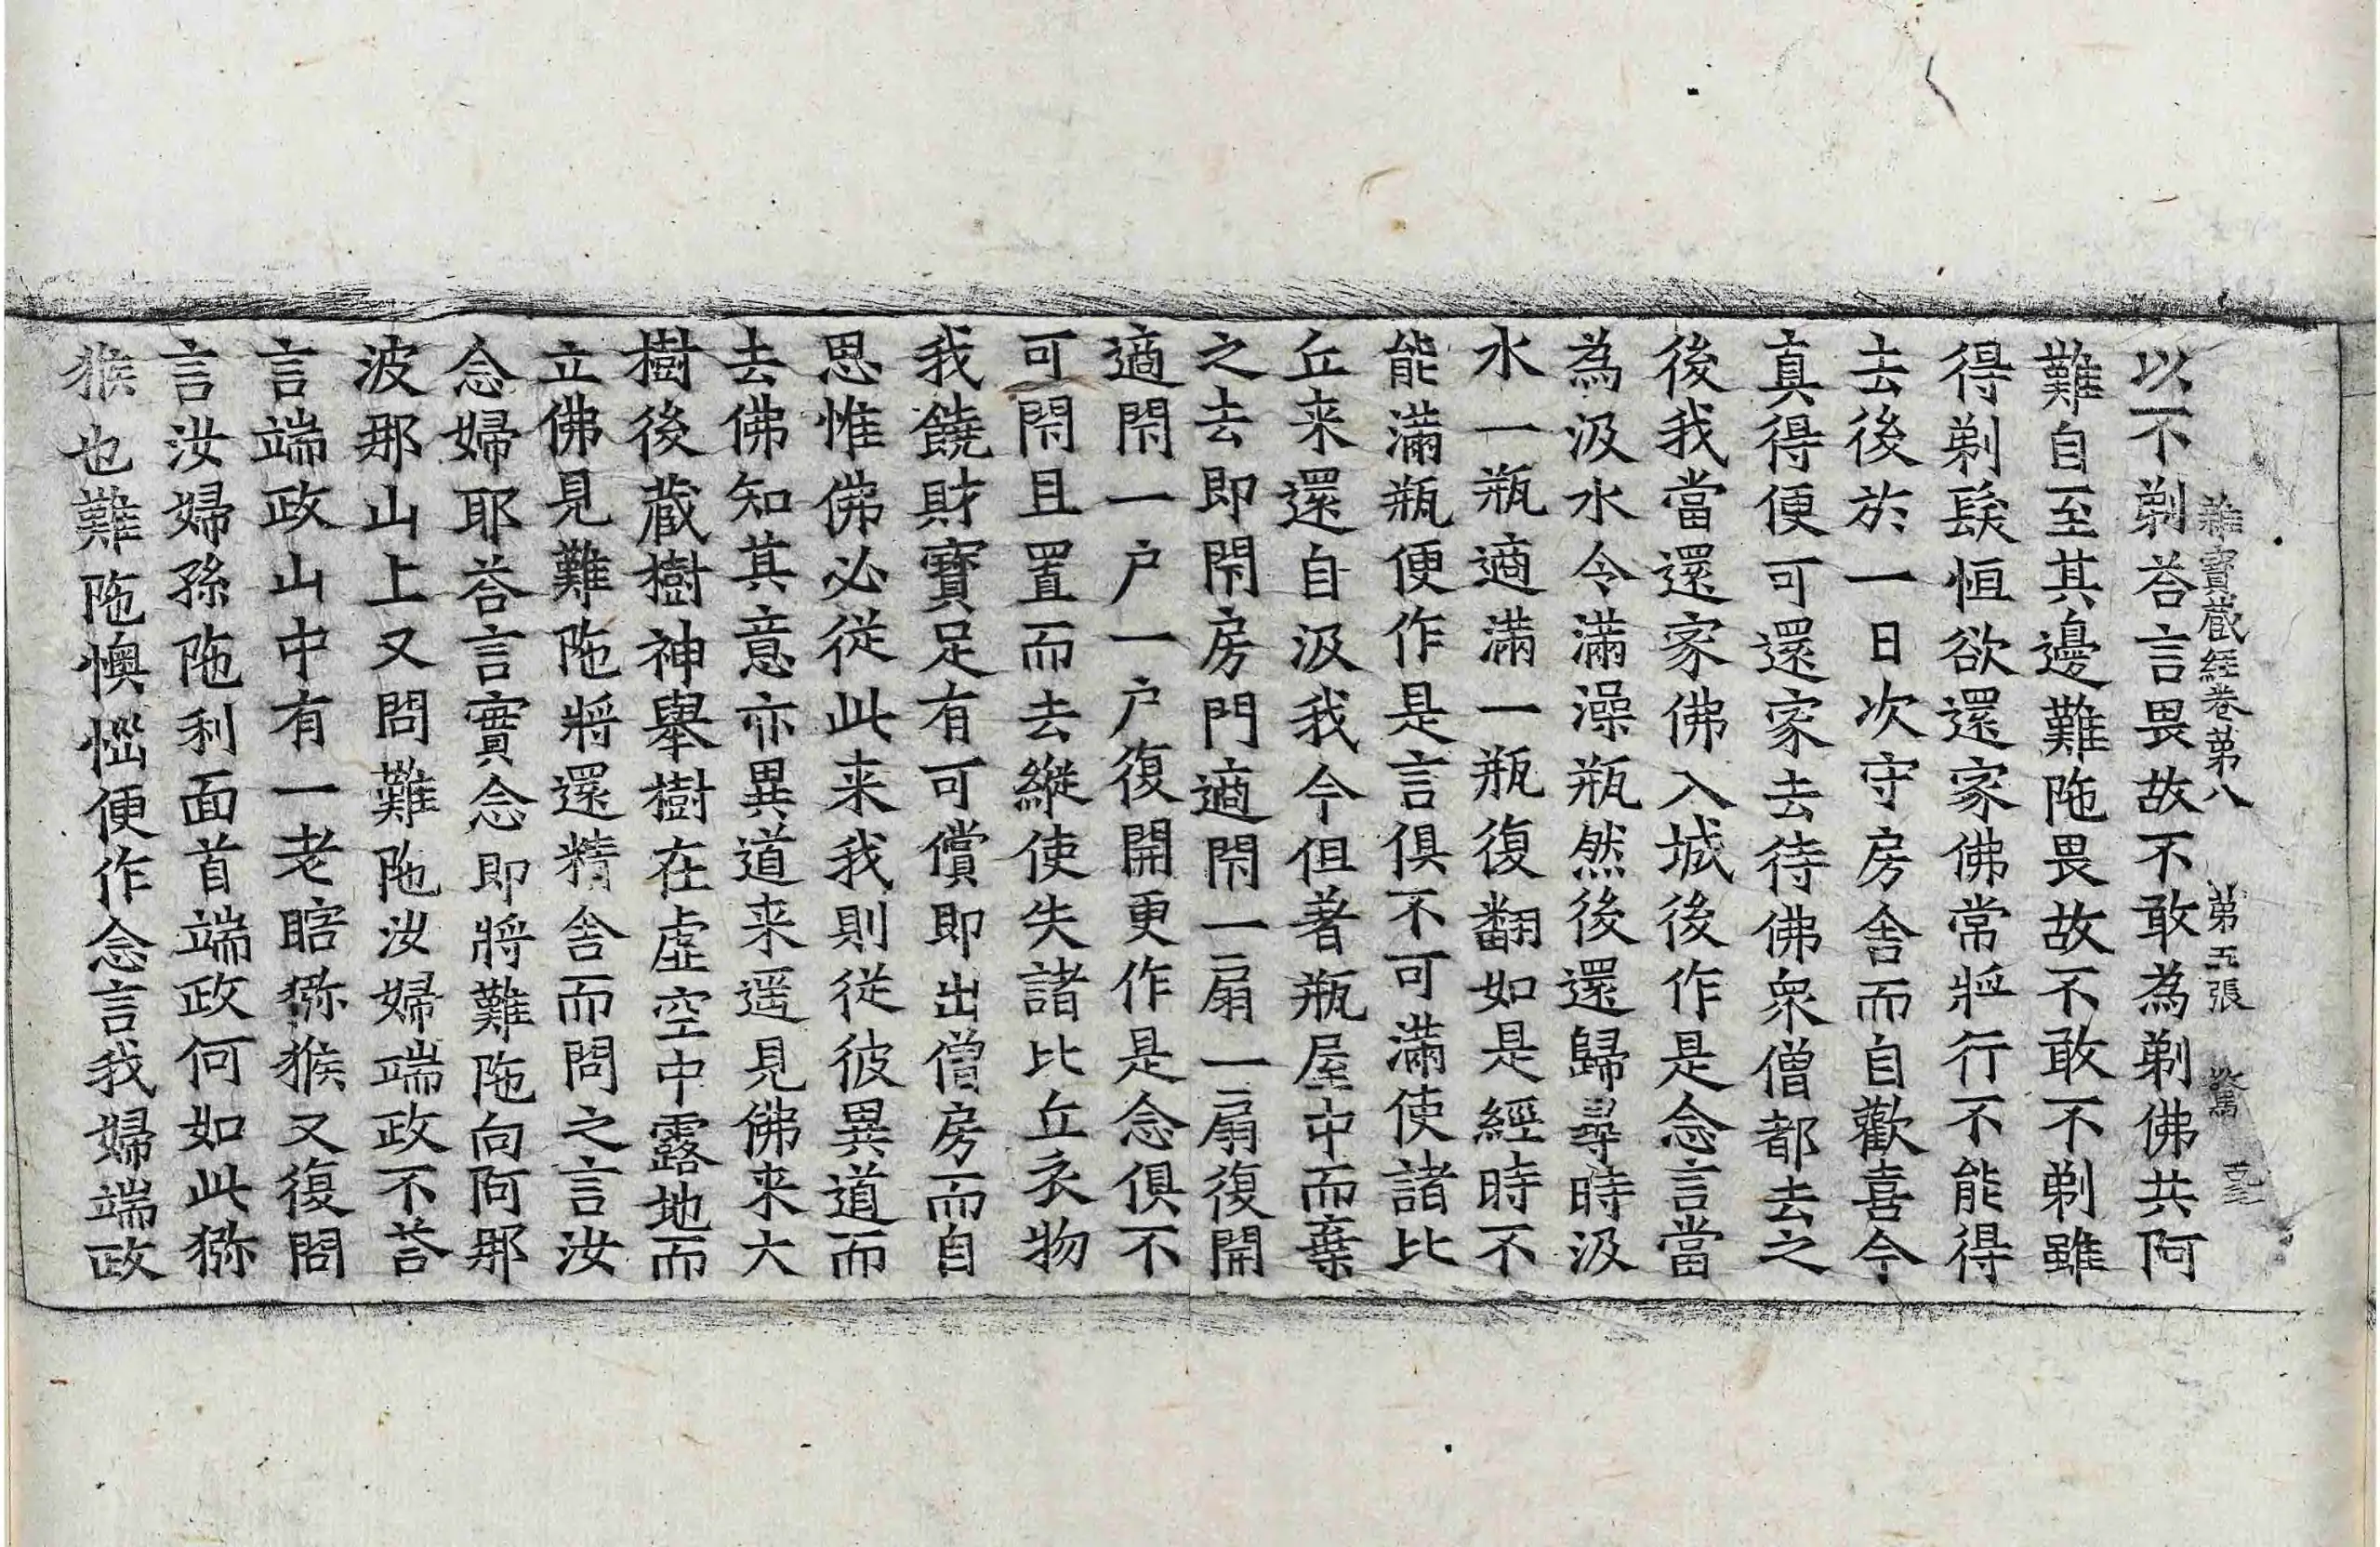 雜寶藏經卷第八 第五張 驚
以不剃荅言畏故不敢為剃佛共阿
難自至其邊難陁畏故不敢不剃雖
得剃髮恒欲還家佛常將行不能得
去後於一日次守房舍而自歡喜今
真得便可還家去待佛衆僧都去之
後我當還家佛入城後作是念言當
為汲水令滿澡瓶然後還歸尋時汲
水一瓶適滿一瓶復翻如是經時不
能滿瓶便作是言俱不可滿使諸比
丘来還自汲我今但著瓶屋中而棄
之去即閇房門適閇一扇一扇復開
適閇一户一户復開更作是念俱不
可閇且置而去縱使失諸比丘衣物
我饒財寶足有可償即出僧房而自
思惟佛必從此来我則從彼異道而
去佛知其意亦異道来遥見佛来大
樹後藏樹神舉樹在虛空中露地而
立佛見難陁將還精舍而問之言汝
念婦耶荅言實念即將難陁向阿那
波那山上又問難陁汝婦端政不荅
言端政山中有一老瞎獼猴又復問
言汝婦孫陁利面首端政何如此獼
猴也難陁懊惱便作念言我婦端政